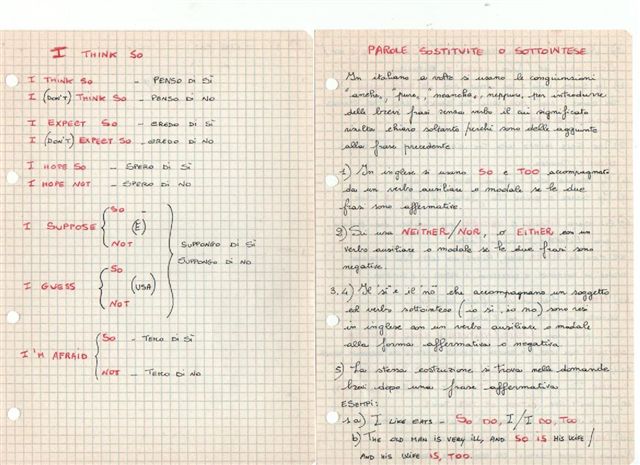 I THINK SO
I THINK SO - PENSO DI SÌ
I (DON'T) THINK SO - PENSO DI NO
I EXPECT SO - CREDO DI SÌ
I (DON'T) EXPECT SO - CREDO DI NO
I HOPE SO - SPERO DI SÌ
I HOPE NOT - SPERO DI NO
I SUPPOSE SO (E)
NOT
SUPPONGO DI SÌ
SUPPONGO DI NO
I GUESS SO (USA)
NOT
I'M AFRAID SO - TEMO DI SÌ
NOT - TEMO DI NO
PAROLE SOSTITUITE O SOTTOINTESE
In italiano a volte si usano le congiunzioni
"anche", "pure", "neanche", neppure, per introdurre
delle brevi frasi senza verbo il cui significato
risulta chiaro soltanto perchè sono delle aggiunte
alla frase precedente.
1) In inglese si usano SO e TOO accompagnato
da un verbo ausiliare o modale se le due
frasi sono affermative.
2) Si usa NEITHER/NOR, o EITHER con un
verbo ausiliare o modale se le due frasi sono
negative.
3,4) Il "sì" e il "no" che accompagnano un soggetto
ed verbo sottointeso (io sì, io no) sono resi
in inglese con un verbo ausiliare o modale
alla forma affermativa o negativa
5) La stessa costruzione si trova nelle domande
brevi dopo una frase affermativa
ESEMPI:
1a) I LIKE CATS - SO DO, I / I DO, TOO.
b) THE OLD MAN IS VERY ILL, AND SO IS HIS WIFE /
AND HIS WIFE IS, TOO.